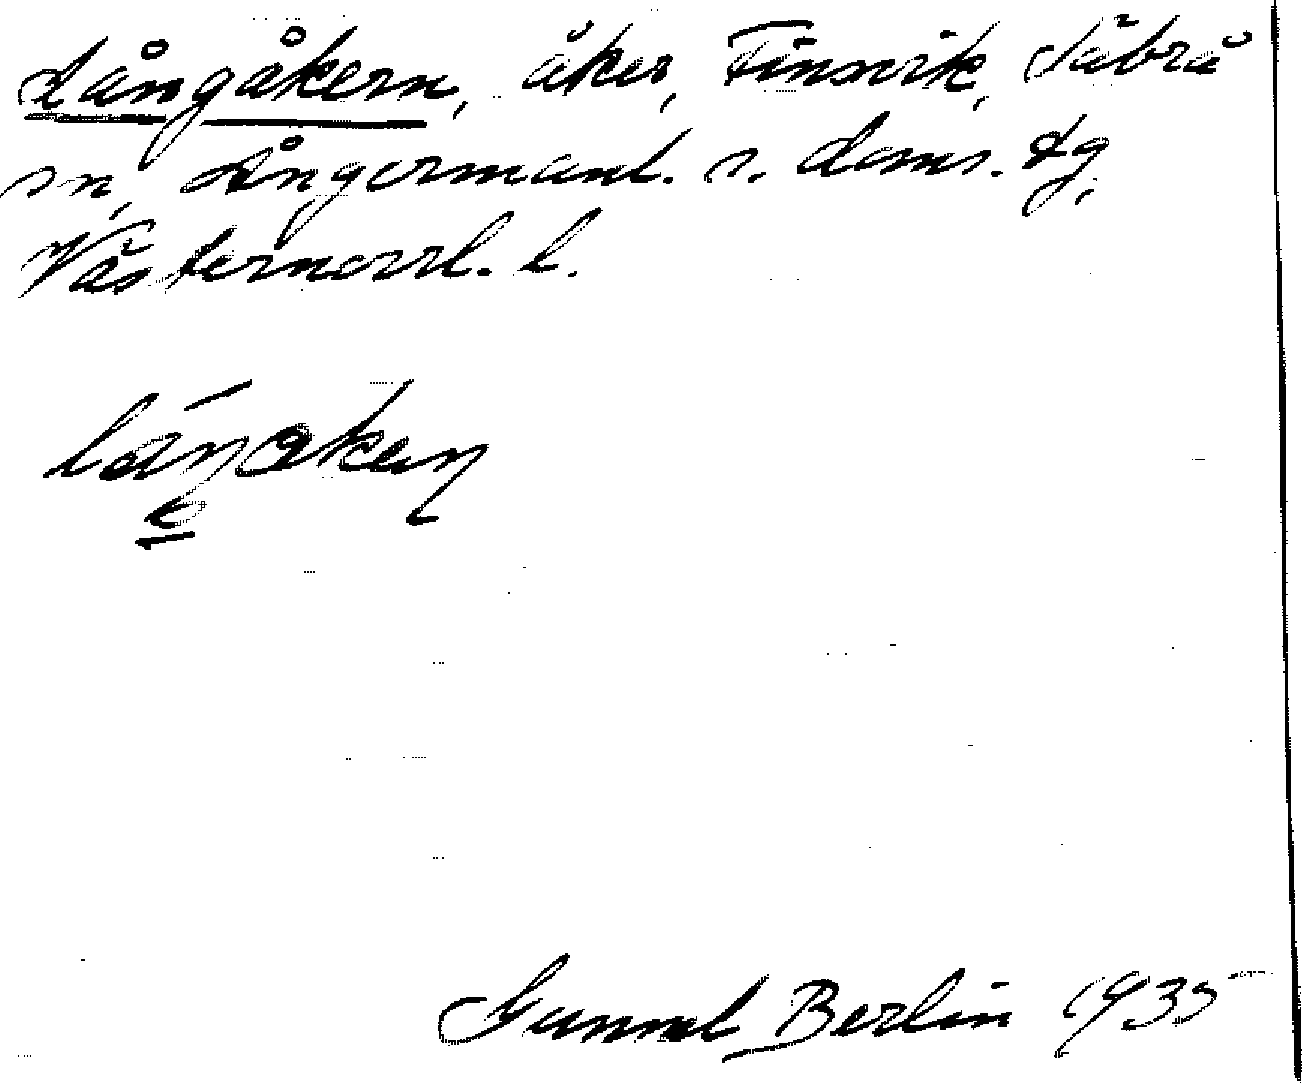 Långåkern, åker, Finsvik, Säbrå
sn, Ångermanl. s. doms. tg,
Västernorrl. l.
Gunnel Berlin 1935